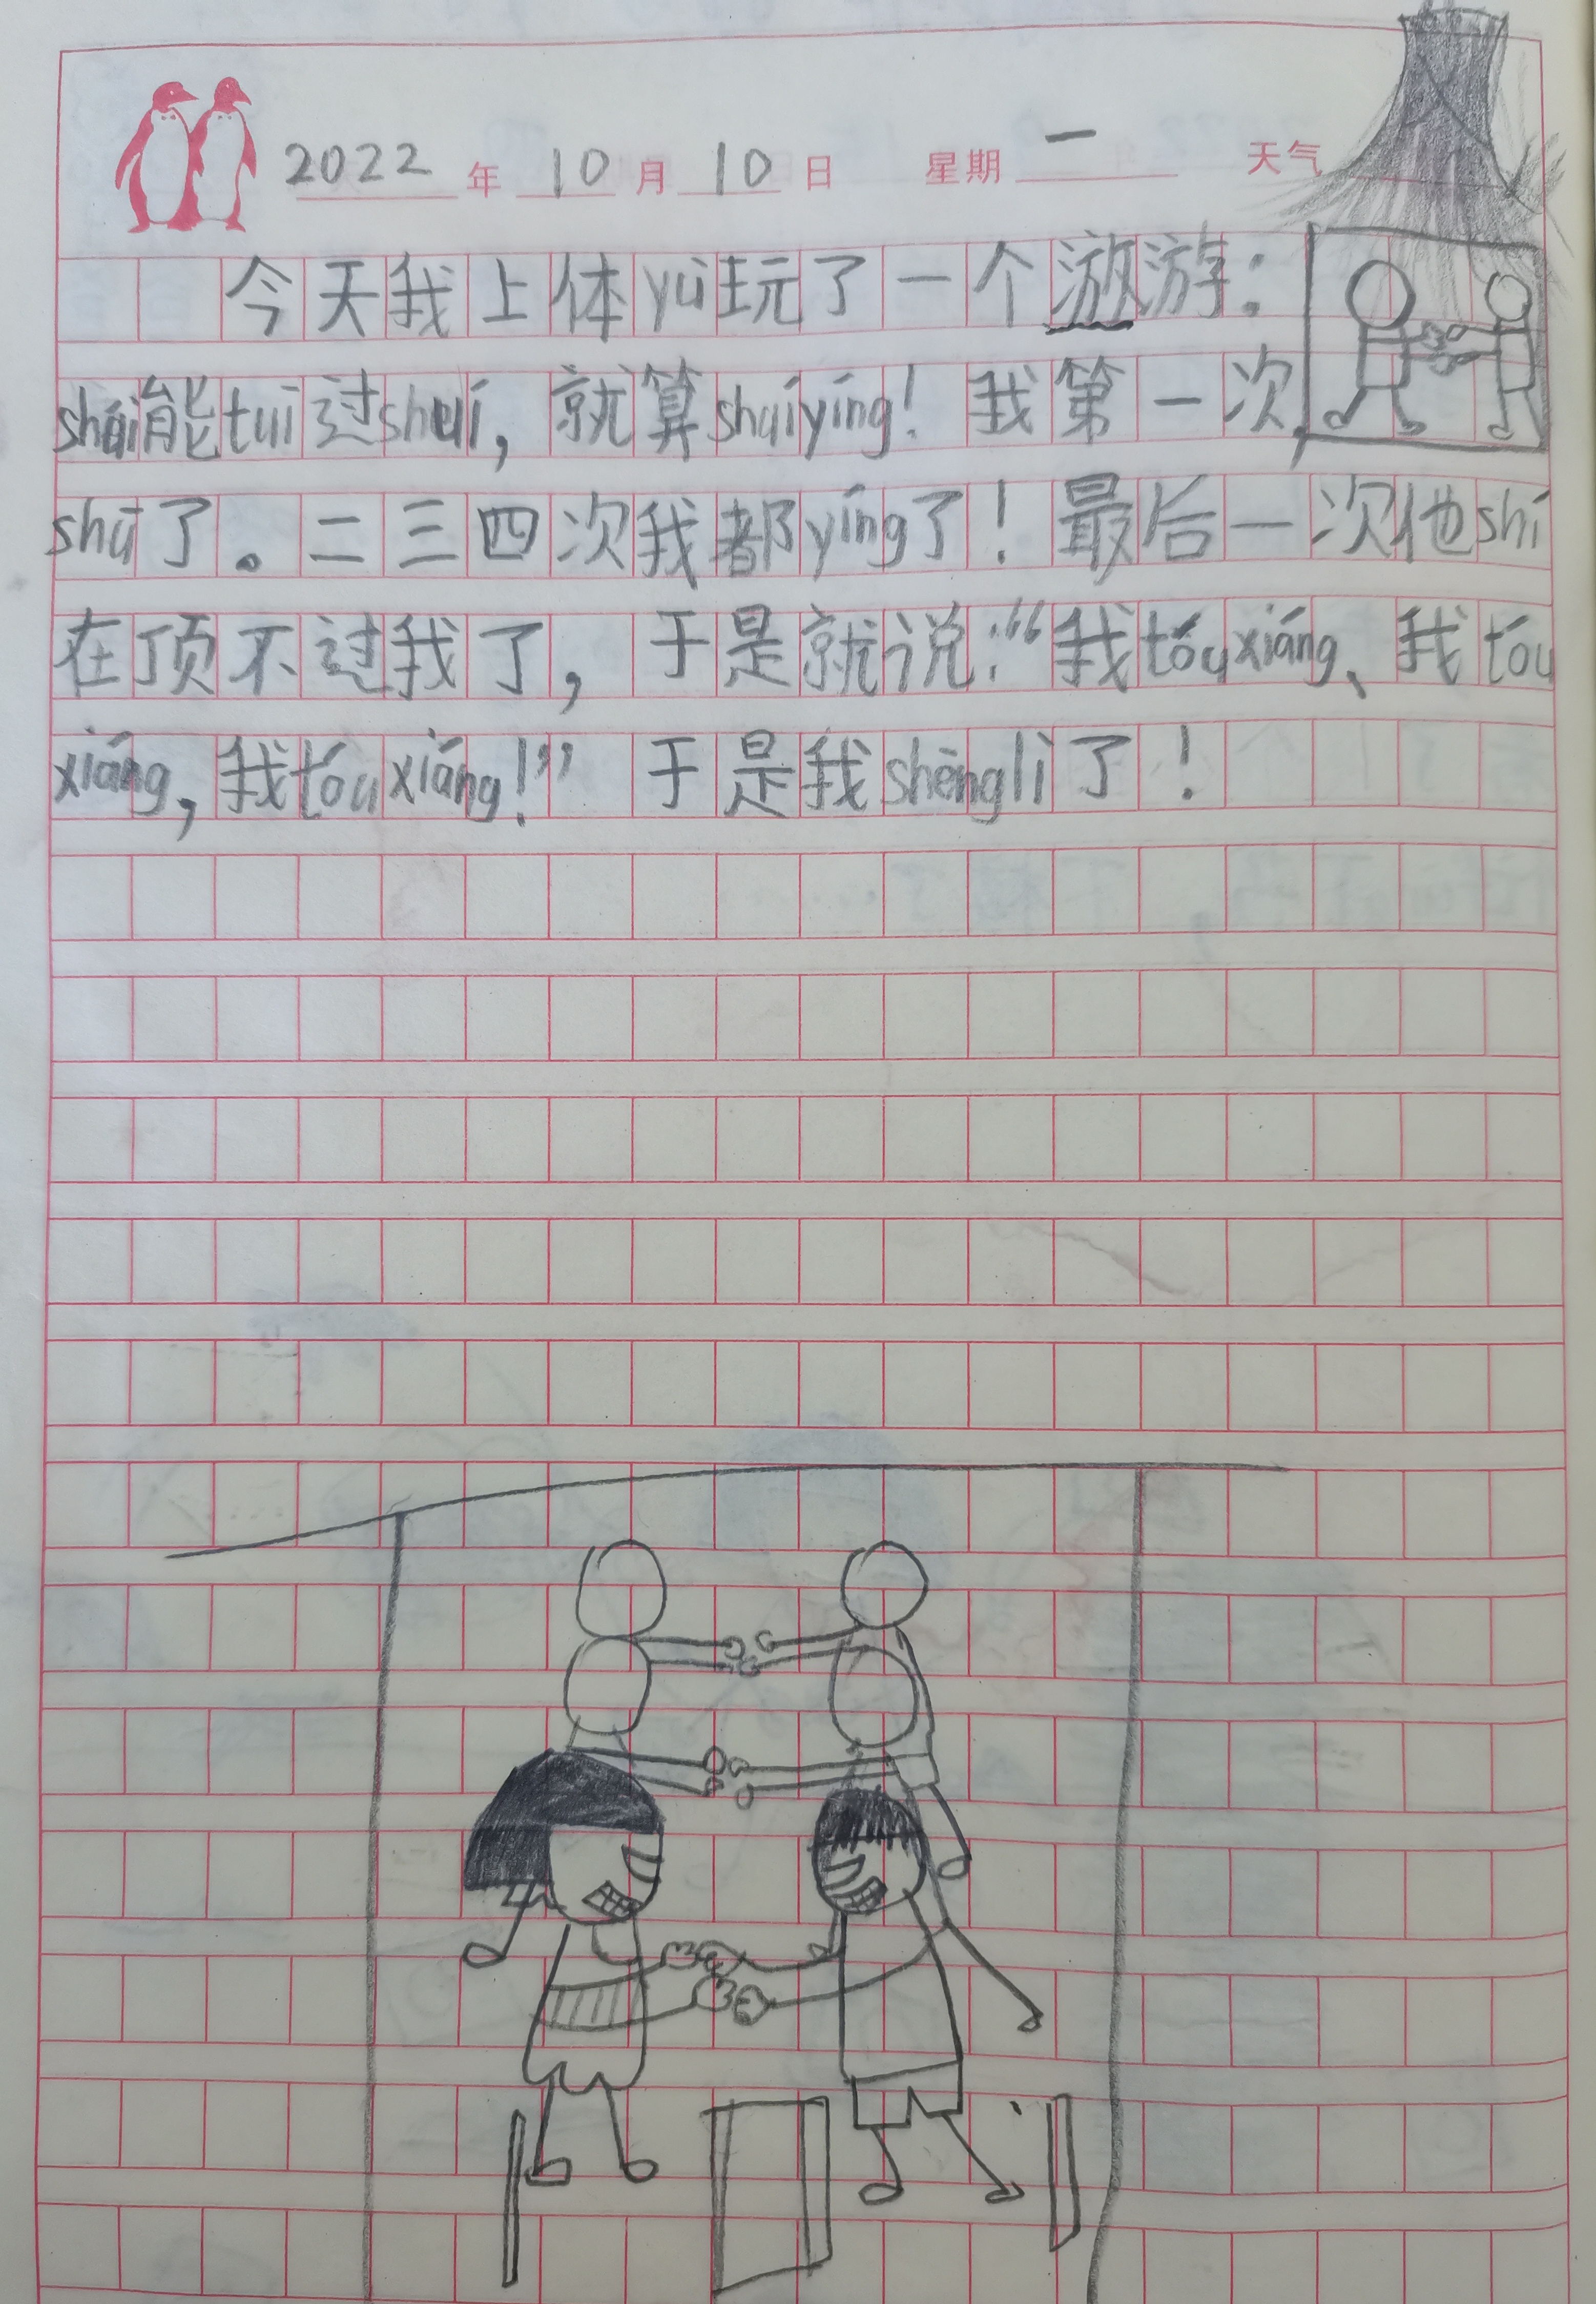 2022年10月10日 星期一 天气
今天我上体yù玩了一个游:
shúi能tuī过shuí，就算shuíyíng！我第一次，
shū了。二三四次我都yíng了！最后一次他shí
在顶不过我了，于是就说：“我tóuxiáng、我tóu
xiáng，我tóuxiáng！”于是我shènglì了！